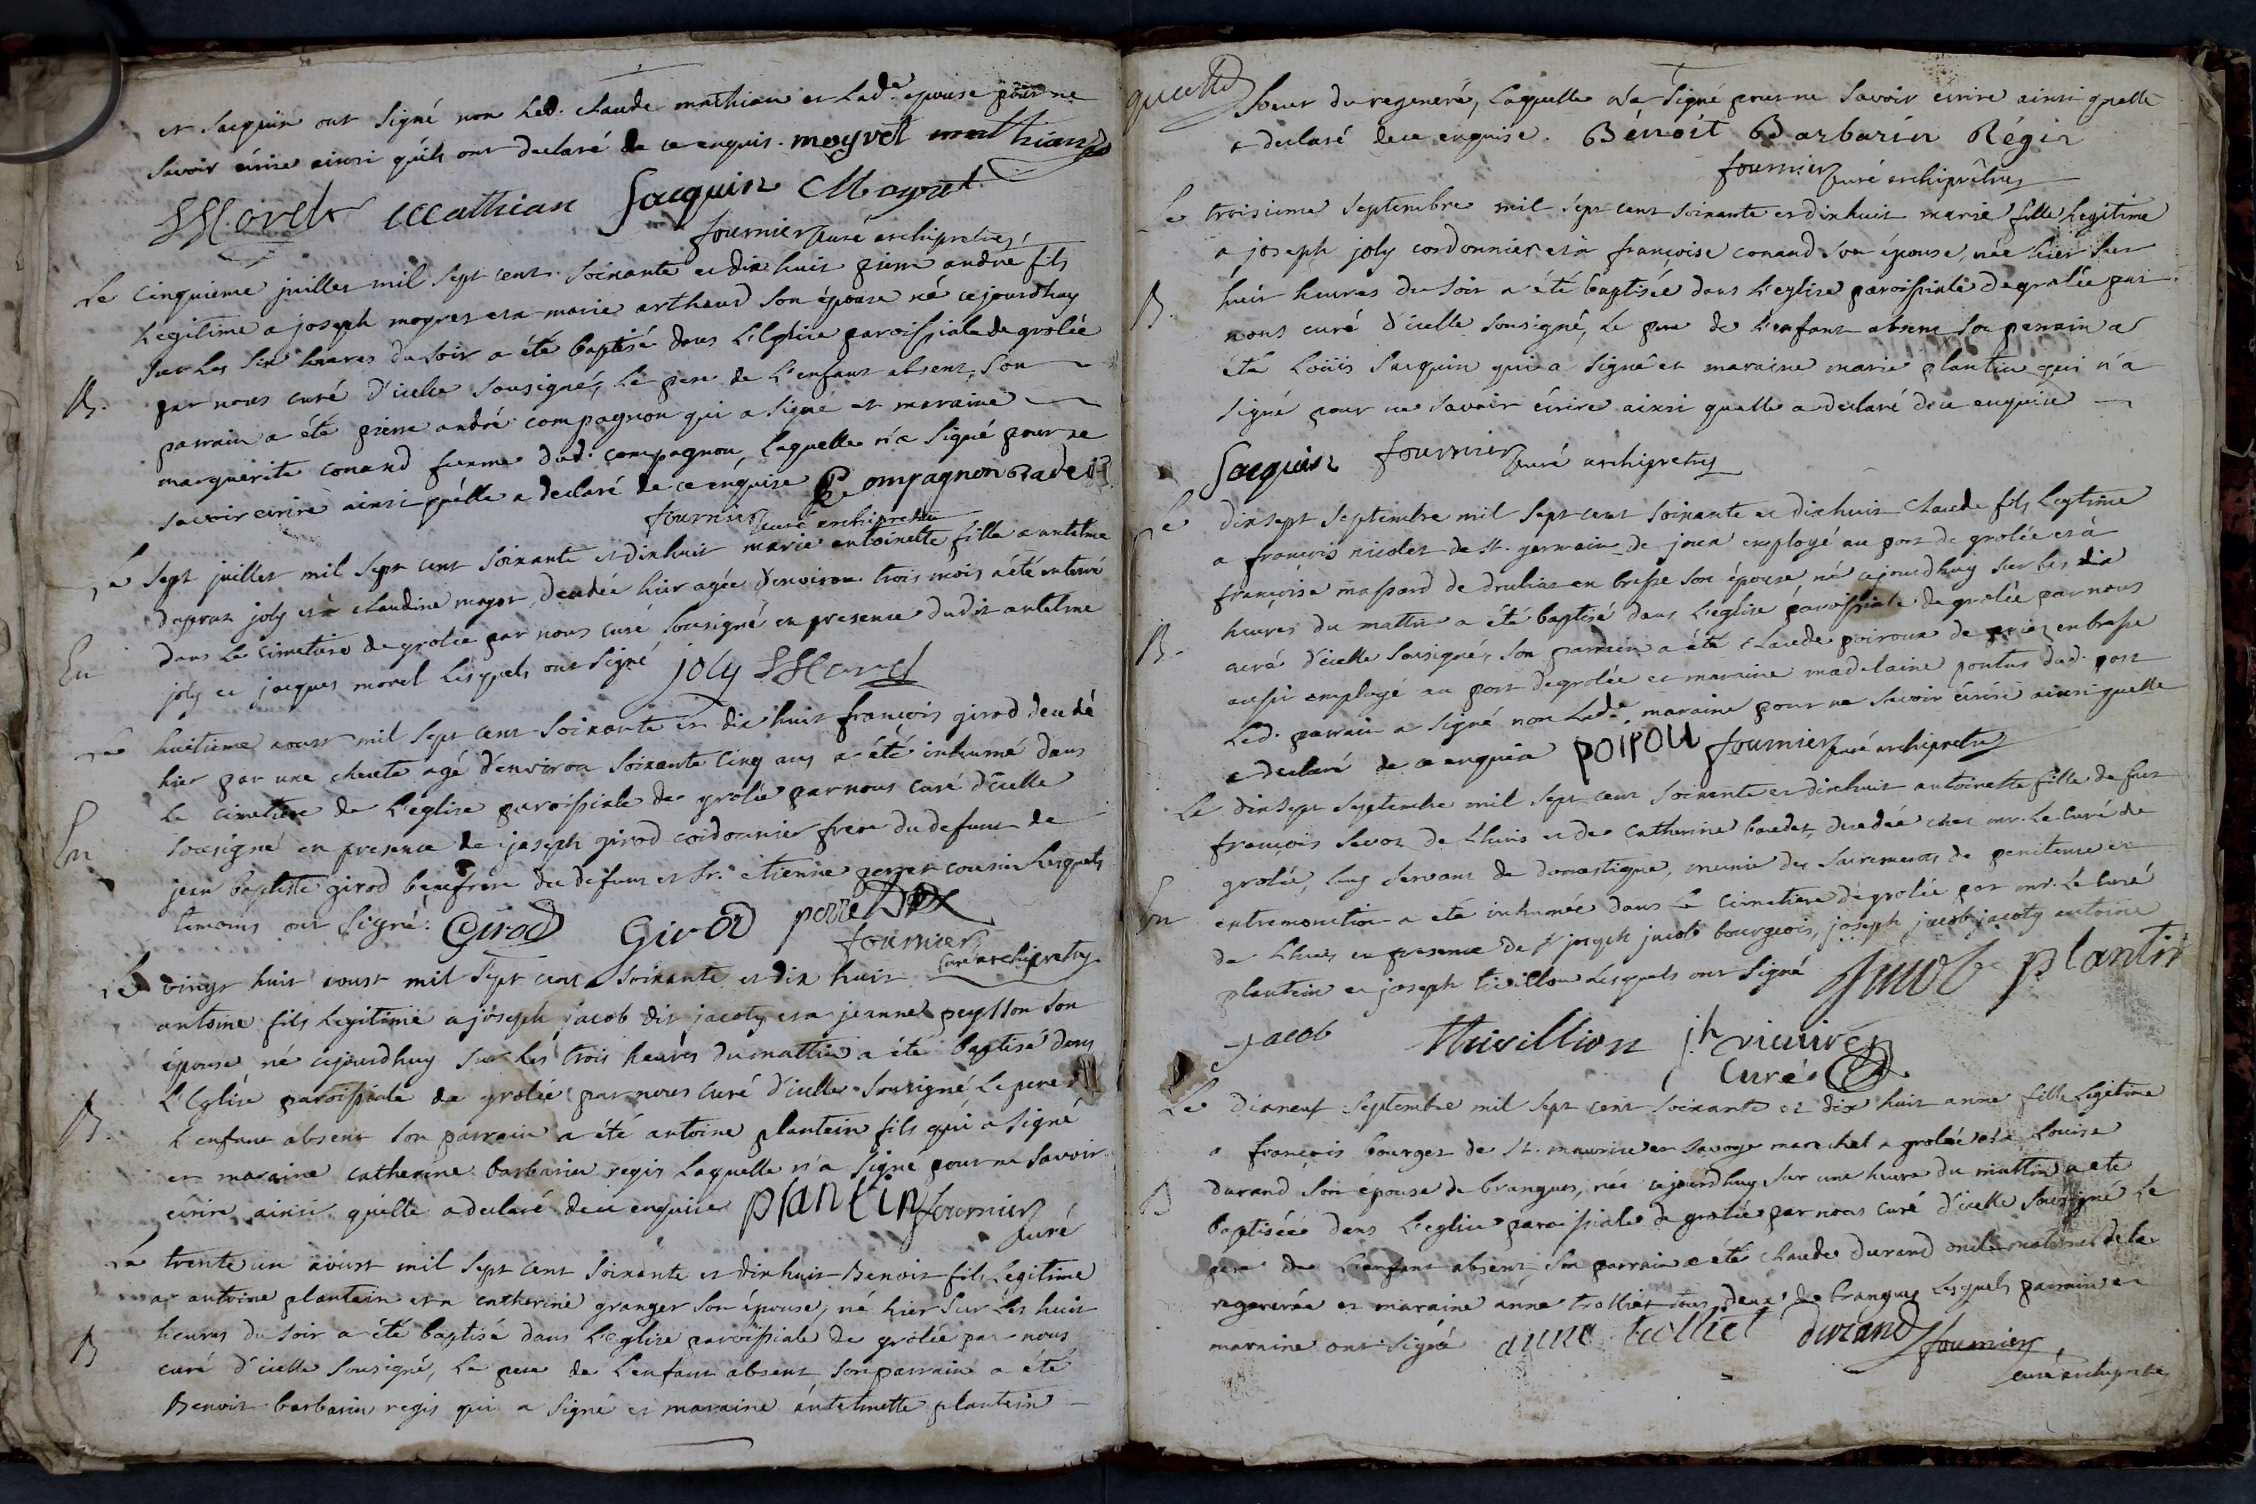 et Jacquin ont signé non led. claude mathian et lad.e epouse pour ne
savoir écrire ainsi qu'ils ont declaré de ce enquis. moyret mathian
Morel Mathian Jacquin Moyret
fournier curé archipretre
Le cinquieme juillet mil sept cent soixante et dix huit pierre andré fils
Legitime a joseph moyret et a marie arthaud son épouse né cejourdhuy
sur les six heures du soir a été baptisé dans L'Eglise paroissiale de grolée
B. par nous curé d'icelle sousigné, le pere de l'enfant absent, son
parrain a été pierre andré compagnon qui a signé et maraine
marguerite conand femme dud. compagnon, Laquelle n'a signé pour ne
savoir ecrire ainsi qu'elle a declaré de ce enquise Compagnon
fournier curé archipretre
Le sept juillet mil sept cent soixante et dixhuit marie antoinette fille a antelme
joly et a claudine moyret, decedée hier agée d'environ trois mois a été enterré
En dans le cimetiere de grolée par nous curé sousigné en presence dudit antelme
joly et jacques morel Lesquels ont signé joly Morel
Le huitieme aoust mil sept cent soixante et dix huit françois girod decedé
hier par une cheute agé d'environ soixante cinq ans a été inhumé dans
le cimetiere de L'eglise paroissiale de grolée par nous curé d'icelle
En sousigné en presence de joseph girod cordonnier frere du defunt de
jean baptiste girod beaufrere du defunt et sr. etienne perret cousin Lesquels
temoins ont signé: Girod Girod perret
fournier
curé archipretre
Le vingt huit aoust mil sept cent soixante et dix huit
antoine fils Legitime a joseph jacob dit jacoty et a jeanne peysson son
épouse né cejourdhuy sur les trois heures du mattin a été baptisé dans
L'Eglise paroissiale de grolée par nous curé d'icelle sousigné, Le pere
B. L'enfant absent son parrain a été antoine plantein fils qui a signé
et maraine catherine barbarin regis Laquelle n'a signé pour ne savoir
écrire ainsi qu'elle a declaré de ce enquise plantin fournier
curé
Le trente un aoust mil sept cent soixante et dixhuit Benoit fils Legitime
a antoine plantein et a catherine granger son épouse, né hier sur les huit
B heures du soir a été baptisé dans L'eglise paroissiale de grolée par nous
curé d'icelle sousigné, le pere de l'enfant absent, son parrain a été
Benoit barbarin regis qui a signé et maraine antelmette plantein
soeur du regeneré, Laquelle n'a signé pour ne savoir écrire ainsi quelle
a declaré de ce enquise. Bénoit Barbarin Régis
fournier curé archiprêtre
Le troisieme septembre mil sept cent soixante et dixhuit marie fille Legitime
a joseph joly cordonnier et a françoise conand son épouse, née hier sur
B. huit heures du soir a été baptisée dans L'eglise paroissiale de grolée par
nous curé d'icelle sousigné, Le pere de L'enfant absent son parrain a
été Loüis Jacquin qui a signé et maraine marie plantin qui n'a
signé pour ne savoir écrire ainsi quelle a declaré de ce enquise
Jacquin fournier curé archipretre
Le dixsept septembre mil sept cent soixante et dixhuit claude fils Legitime
a françois nicolet de st. germain de joux employé au port de grolée et a
françoise massard de en bresse son épouse né cejourdhuy sur les dix
B. heures du mattin a été baptisé dans L'eglise paroissiale de grolée par nous
curé d'icelle sousigné, son parrain a été claude poiroux de en bresse
aussi employé au port de grolée et maraine madelaine pontus dud. port
Led. parrain a signé non Lad.e maraine pour ne savoir écrire ainsi quelle
a declaré de ce enquise poirou fournier curé archipretre
Le dixsept septembre mil sept cent soixante et dixhuit antoinette fille de feu
françois Savoz de Lhuis et de catherine baudet, decedée chez mr. Le curé de
grolée, Lui servant de domestique, munie des sacrements de penitence et
En extremonction a été inhumée dans Le cimetiere de grolée par mr. Le curé
de Lhuis en presence de joseph jacob bourgeois, joseph jacob jacoty antoine
plantein et joseph tivillon Lesquels ont signé Jacob plantin
jacob thivillion jh vieuvre
curé
Le dixneuf septembre mil sept cent soixante et dix huit anne fille Legitime
a françois bourget de st. maurice en savoye marechal a grolée et a Louise
B durand son épouse de brangues, née cejourdhuy sur une heure du mattin a été
baptisée dans L'eglise paroissiale de grolée par nous curé d'icelle sousigné Le
pere de L'enfant absent, son parrain a été claude durand oncle maternel de la
regenerée et maraine anne trolliet tous deux de brangues Lesquels parrain et
maraine ont signé anne trolliet durand fournier
curé archiprêtre